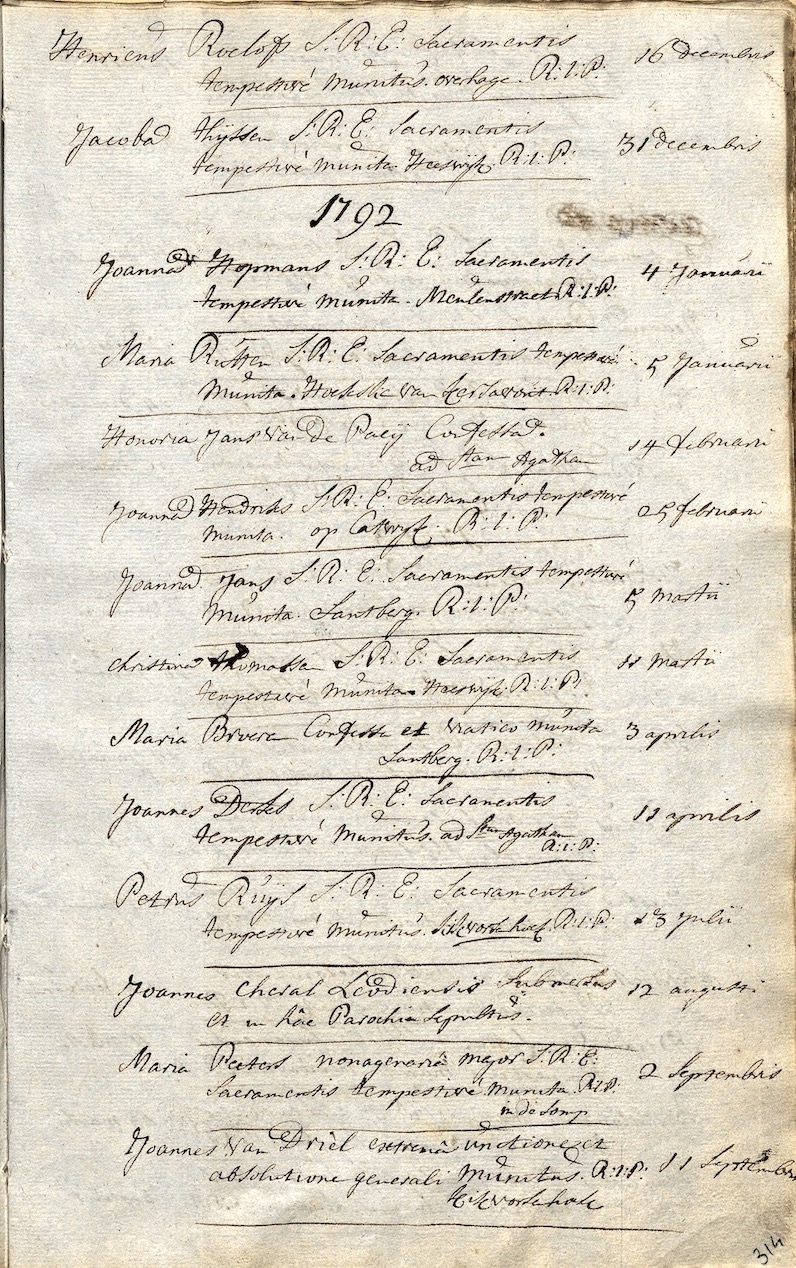 Henricus Roelofs S: R: E: Sacramentis 16 decembris
tempestivé munitus. overhage. R: I: P:
Jacoba thijssen S: R: E: Sacramentis 31 decembris
tempestivé munita. Heeswijk. R: I: P:
1792
Joanna Hopmans S: R: E: Sacramentis 4 Januarii
tempestivé munita. Meulenstraet R: I: P:
Maria Rutten S: R: E: Sacramentis tempestivé 5 Januarii
munita. van R: I: P:
Honoria Jans van de Paeij Confessa. 14 februarii
ad Stam Agatham
Joanna Hendriks S: R: E: Sacramentis tempestivé 25 februarii
munita. op Catwijk. R: I: P:
Joanna Jans S: R: E: Sacramentis tempestivé 5 Martii
munita. Santberg. R: I: P:
Christina thomassen S: R: E: Sacramentis 11 Martii
tempestivé munita. Heeswijk. R: I: P:
Maria Bvvers Confessa et viatico munita 3 aprilis
Santberg. R: I: P:
Joannes Derks S: R: E: Sacramentis 11 aprilis
tempestivé munitus. ad Stam Agatham
R: I: P:
Petrus Ruijs S: R: E: Sacramentis 13 Julii
tempestivé munitus. R: I: P:
Joannes Cheral Leodiensis Submersus 12 augusti
et in hâc Parochia Sepultus.
Maria Peeters nonagenariâ major S: R: E: 2 Septembris
Sacramentis tempestivé munita. R: I: P:
in de Somp
Joannes van Driel extremâ unctione et
absolutione generali munitus. R: I: P: 11 Septembris
314